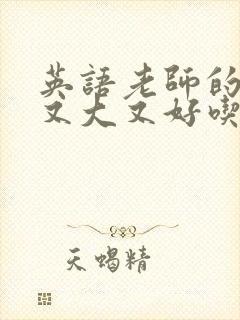 英語老師的
又大又好喫
天蝎精